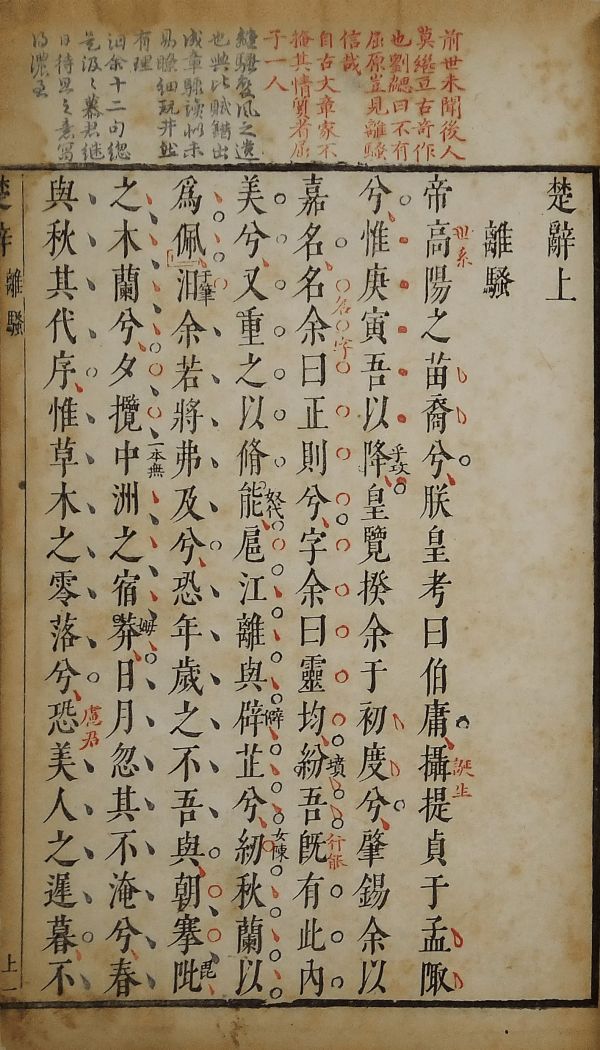 前世未聞後人
莫繼亘古奇作
也劉勰曰不有
屈原豈見離騷
信哉
自古文章家不
掩其情質者屈
子一人
騷風之遺
也興比賦錯出
成章驟讀似未
易瞭細玩井然
有理
汩余十二句總
是汲汲慕君繼
日待旦之意寫
得濃至
楚辭上
離騷
帝高陽之苗裔兮朕皇考曰伯庸攝提貞于孟陬
世系
誕生
兮惟庚寅吾以降皇覽揆余于初度兮肇錫余以
乎攻
嘉名名余曰正則兮字余曰靈均紛吾旣有此內
名
字
墳
行能
美兮又重之以脩能扈江離與辟芷兮紉秋蘭以
奴代
僻
女陳
爲佩汩余若將弗及兮恐年歲之不吾與朝搴阰
于筆
毘
之木蘭兮夕攬中洲之宿莽日月忽其不淹兮春
一本無
姆
與秋其代序惟草木之零落兮恐美人之遲暮不
慮君
楚辭
離騷
上一